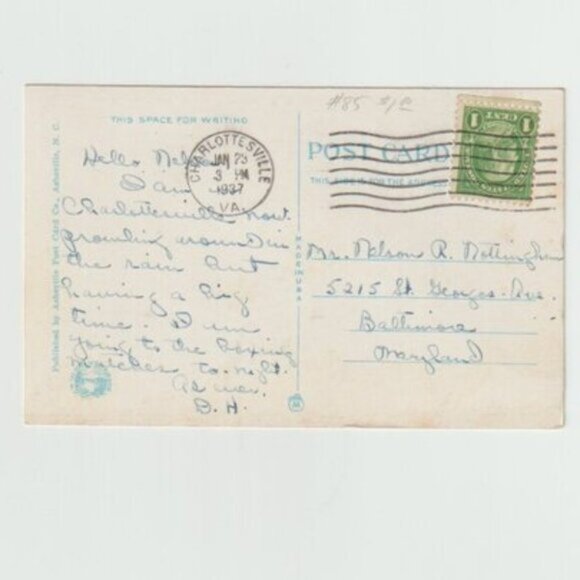 #85 $1.00
THIS SPACE FOR WRITING
POST CARD
THIS SIDE IS FOR THE ADDRESS
CHARLOTTESVILLE
JAN 23
3 PM
1937
VA.
1
1
Hello Nelson
I am
Charlottesville
prowling around in
the rain but
having a big
time. I am
going to the boxing
matches to-night.
As ever
B.H.
MADE IN U.S.A.
Published by Asheville Post Card Co., Asheville, N. C.
Mr. Nelson R. Nottingham
5215 St. Georges Ave.
Baltimore
Maryland